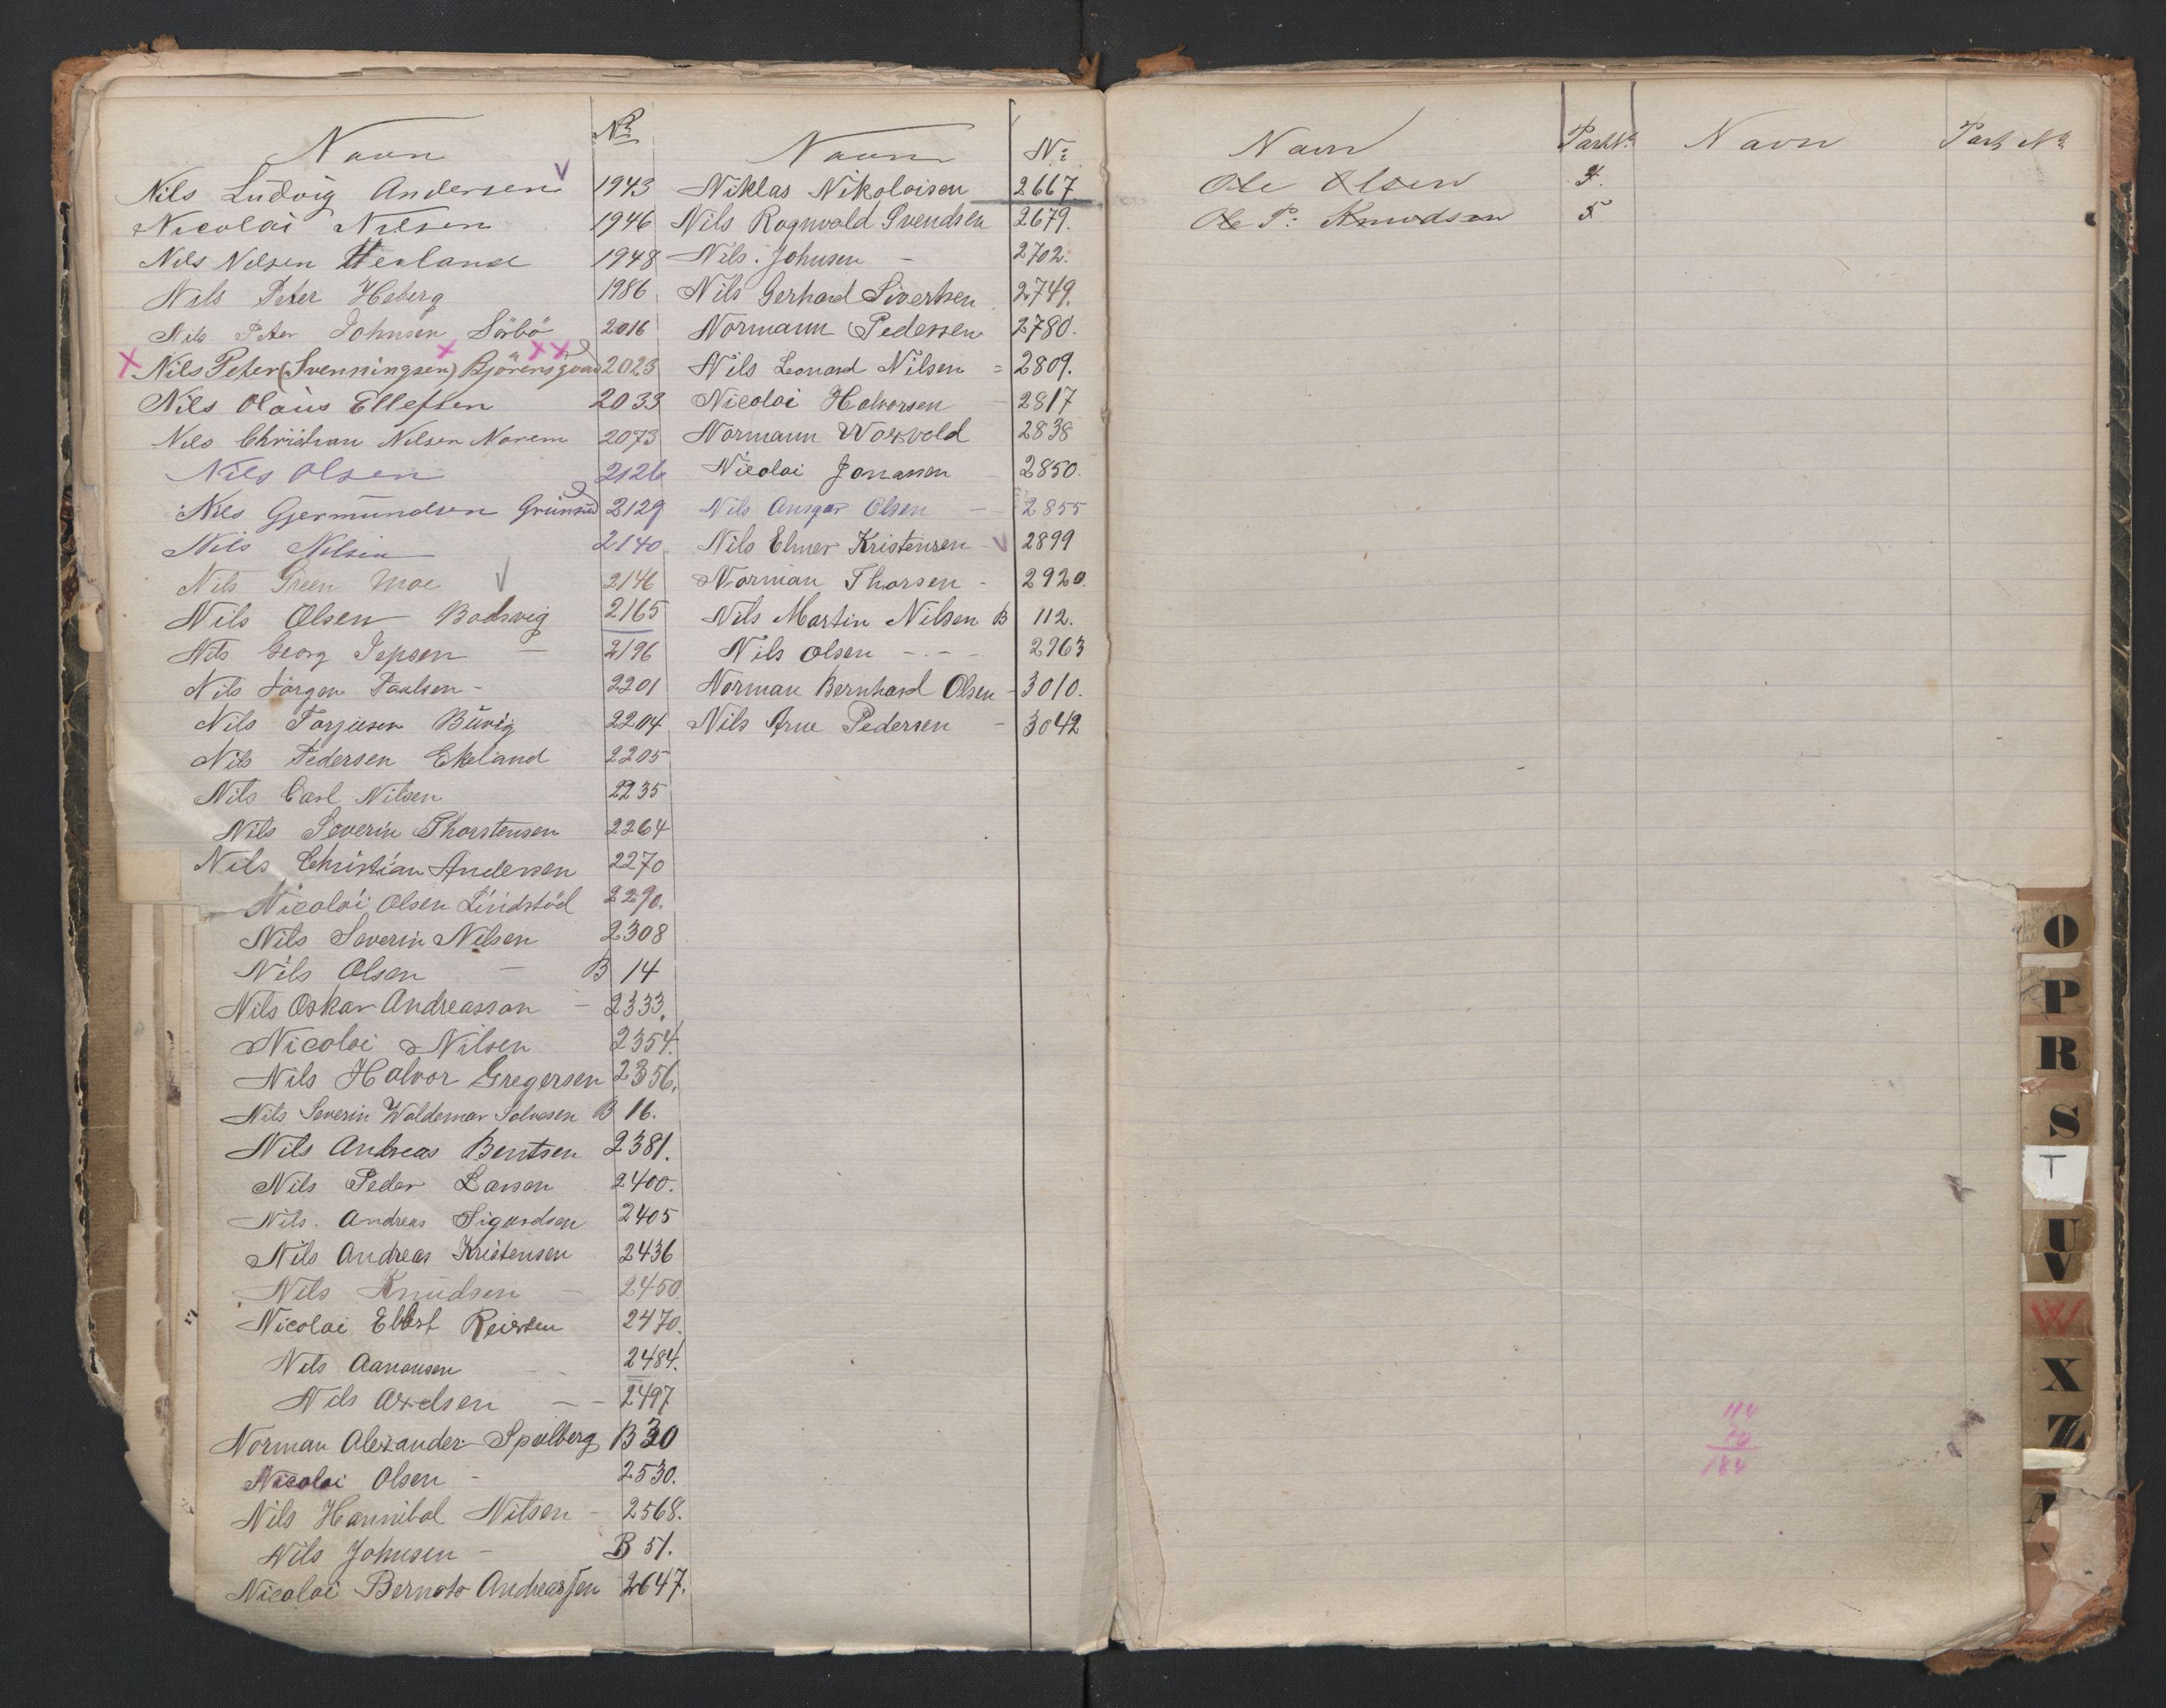 Navn Nr
Nils Ludvig Andersen 1943
Nicolai Nilsen 1946
Nils Nilsen Herland 1948
Nils Peter Heberg 1986
Nils Peter Johnsen Sörbö 2016
Nils Peter (Svenningsen) 2023
Nils Olaus Ellefsen 2033
Nils Christian Nilsen Narem 2073
Nils Olsen 2126
Nils Gjermundsen 2129
Nils Nilsen 2140
Nils Green Moe 2146
Nils Olsen Bodsvig 2165
Nils Georg Jepsen 2196
Nils Jörgen Paulsen - 2201
Nils Torjusen Buvig 2204
Nils Pedersen Ekeland 2205
Nils Carl Nilsen 2235
Nils Severin Thorstensen 2264
Nils Christian Andersen 2270
Nicolai Olsen Lindstöl 2290.
Nils Severin Nilsen 2308
Nils Olsen - B 14
Nils Oskar Andreassen - 2333.
Nicolai Nilsen 2354.
Nils Halvor Gregersen 2356.
Nils Severin Waldemar Salvesen B 16.
Nils Andreas Bentsen 2381.
Nils Peder Larsen 2400.
Nils. Andreas Sigurdsen 2405
Nils Andreas Kristensen 2436
Nils Knudsen - 2450
Nicolai Reiersen 2470.
Nils Aanonsen 2484.
Nils Axelsen - - 2497
Norman Alexander Spilberg B 30
Nicolai Olsen - 2530.
Nils Hannibal Nilsen - 2568.
Nils Johnsen - B 51.
Nicolai Andreassen 2647.
Navn Nr
Niklas Nikolaisen 2667.
Nils Rognvald Svendsen 2679.
Nils. Johnsen - 2702.
Nils Gerhard Sivertsen 2749.
Normann Pedersen 2780.
Nils Leonard Nilsen = 2809.
Nicolai Halvorsen - 2817
Normann Woxvold 2838
Nicolai Jonassen - 2850.
Nils Ansgar Olsen - 2855
Nils Elmer Kristensen - 2899
Norman Thorsen - 2920.
Nils Martin Nilsen B 112.
Nils Olsen - - - 2963
Norman Bernhard Olsen - 3010.
Nils Arne Pedersen - 3042
Navn Part Nr Navn Part Nr
Ole Olsen
Ole P: Knudsen 5
O
P
R
S
T
U
V
W
X
Z